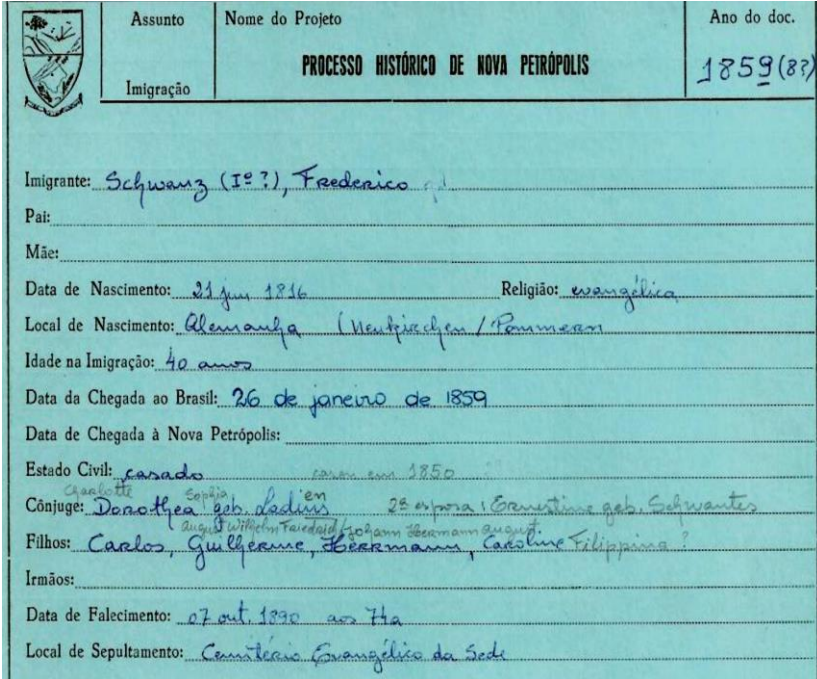 Assunto
Imigração
Nome do Projeto
PROCESSO HISTÓRICO DE NOVA PETRÓPOLIS
Ano do doc.
1859(8?)
Imigrante: Schwanz (Iº?), Frederico
Pai:
Mãe:
Data de Nascimento: 21 jun 1816 Religião: evangélica
Local de Nascimento: Alemanha (Neukirchen / Pommern
Idade na Imigração: 40 anos
Data da Chegada ao Brasil: 26 de janeiro de 1859
Data de Chegada à Nova Petrópolis:
Estado Civil: casado casou em 1850
Charlotte Sophia en
Cônjuge: Dorothea geb. Ladius 2ª esposa: Ernestine geb. Schwantes
august Wilhelm Friedrich/Johann Hermann august
Filhos: Carlos, Guilherme, Herrmann, Caroline Filippina ?
Irmãos:
Data de Falecimento: 07 out. 1890 aos 74a
Local de Sepultamento: Cemitério Evangélico da Sede